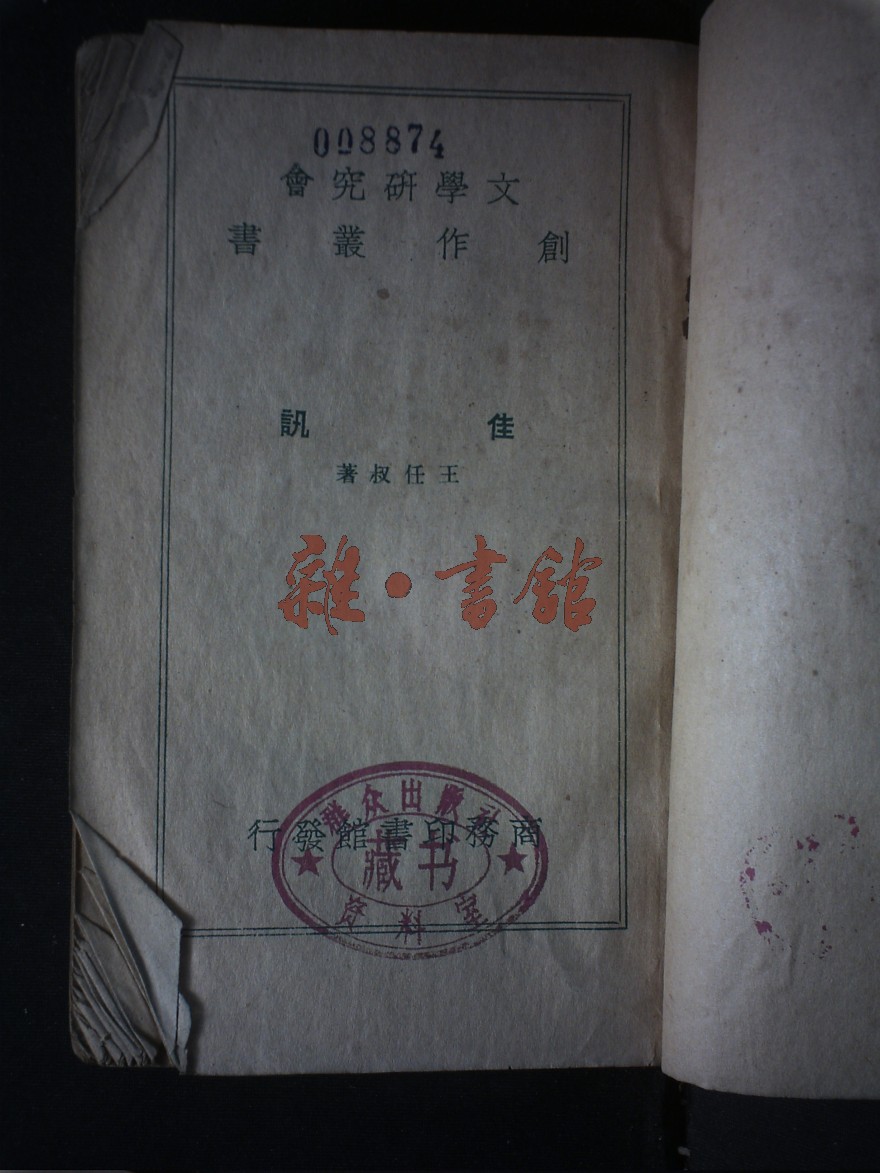 008874
文學研究會
創作叢書
佳訊
王任叔著
雜·書館
商務印書館發行
群众出版社
藏书
资料室